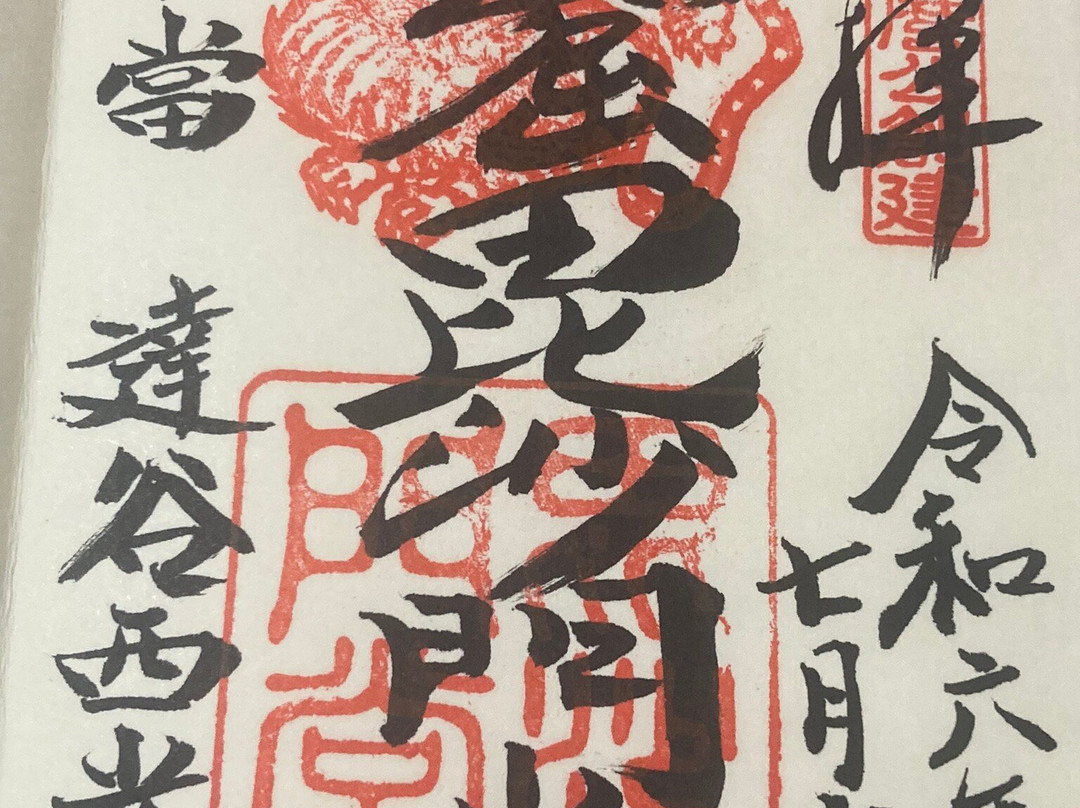 拝
令和六
七月
窟毘沙門
當 達谷西光
建